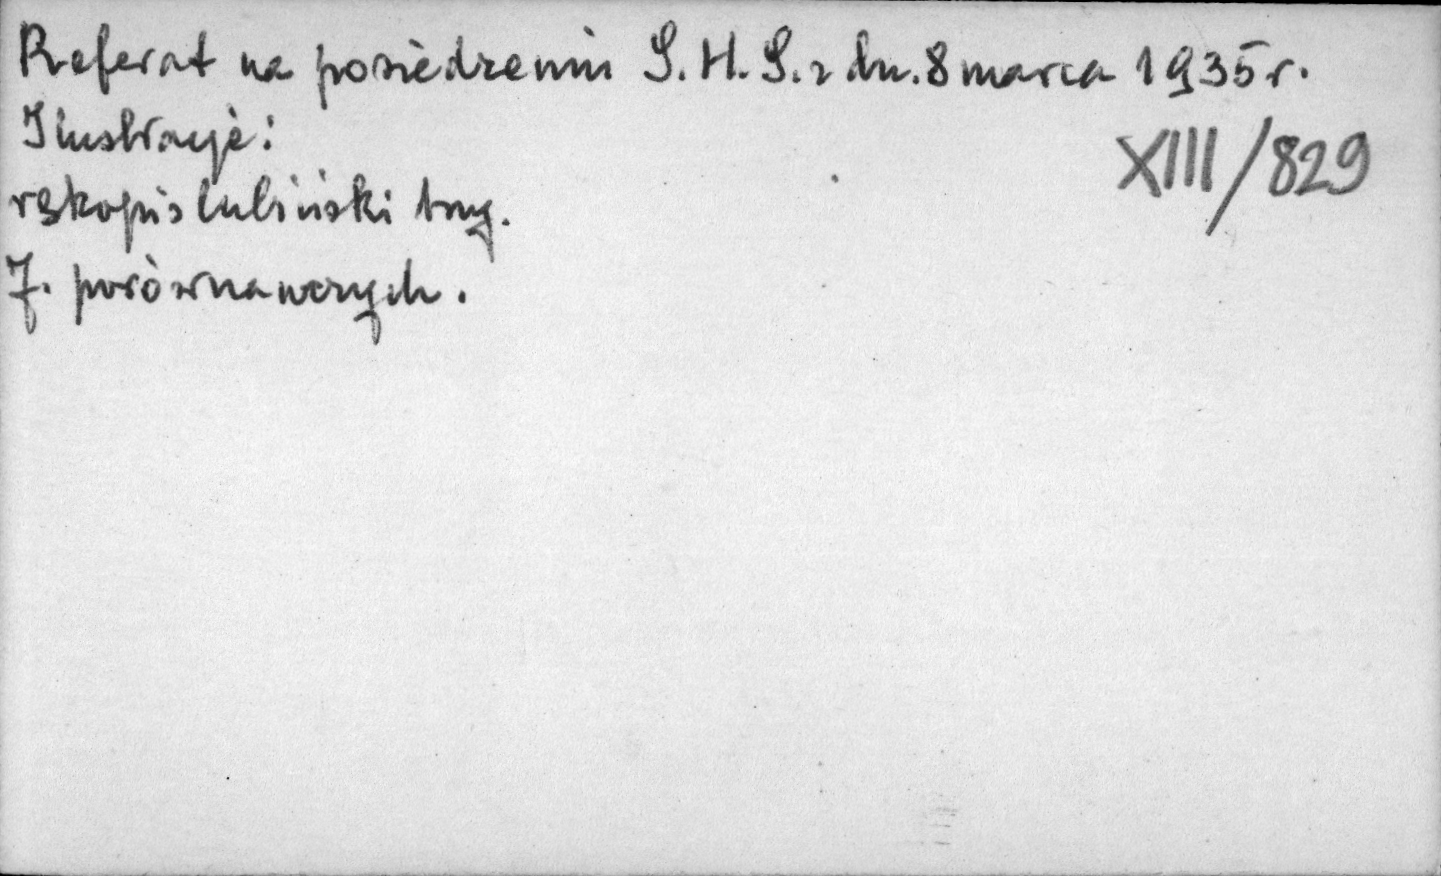 Referat na posiedzeniu S. H. S. z dn. 8 marca 1935 r.
Ilustracje:
XIII/829
rękopis lubiński
7. porównawczych.